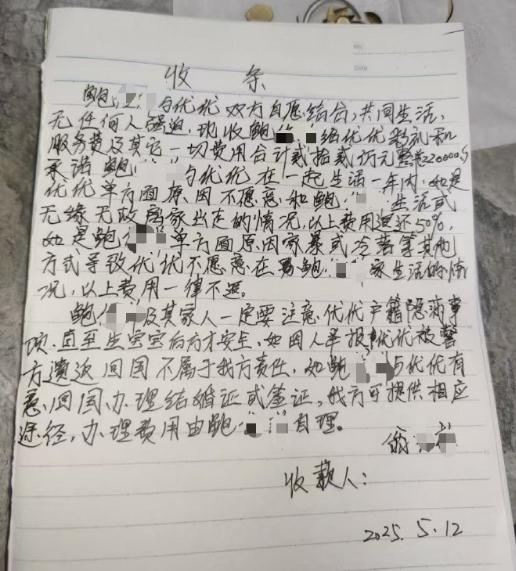 收条
鲍 与优优双方自愿结合,共同生活,
无任何人强迫,现收鲍 给优优彩礼和
服务费及其它一切费用合计贰拾贰万元整220000
承诺鲍 与优优在一起生活一年内,如是
优优单方面原因不愿意和鲍 生活或
无缘无故离家出走的情况,以上费用退还50%,
如是鲍 单方面原因家暴或冷暴等其他
方式导致优优不愿意在男鲍 家生活的情
况,以上费用一律不退。
鲍 及其家人一定要注意优优户籍隐满事
项,直至生完宝后方才安全,如因人举报优优被警
方遣返回国不属于我方责任,如鲍 与优优有
意回国办理结婚证或签证,我方可提供相应
途径,办理费用由鲍 自理。
收款人:
2025.5.12